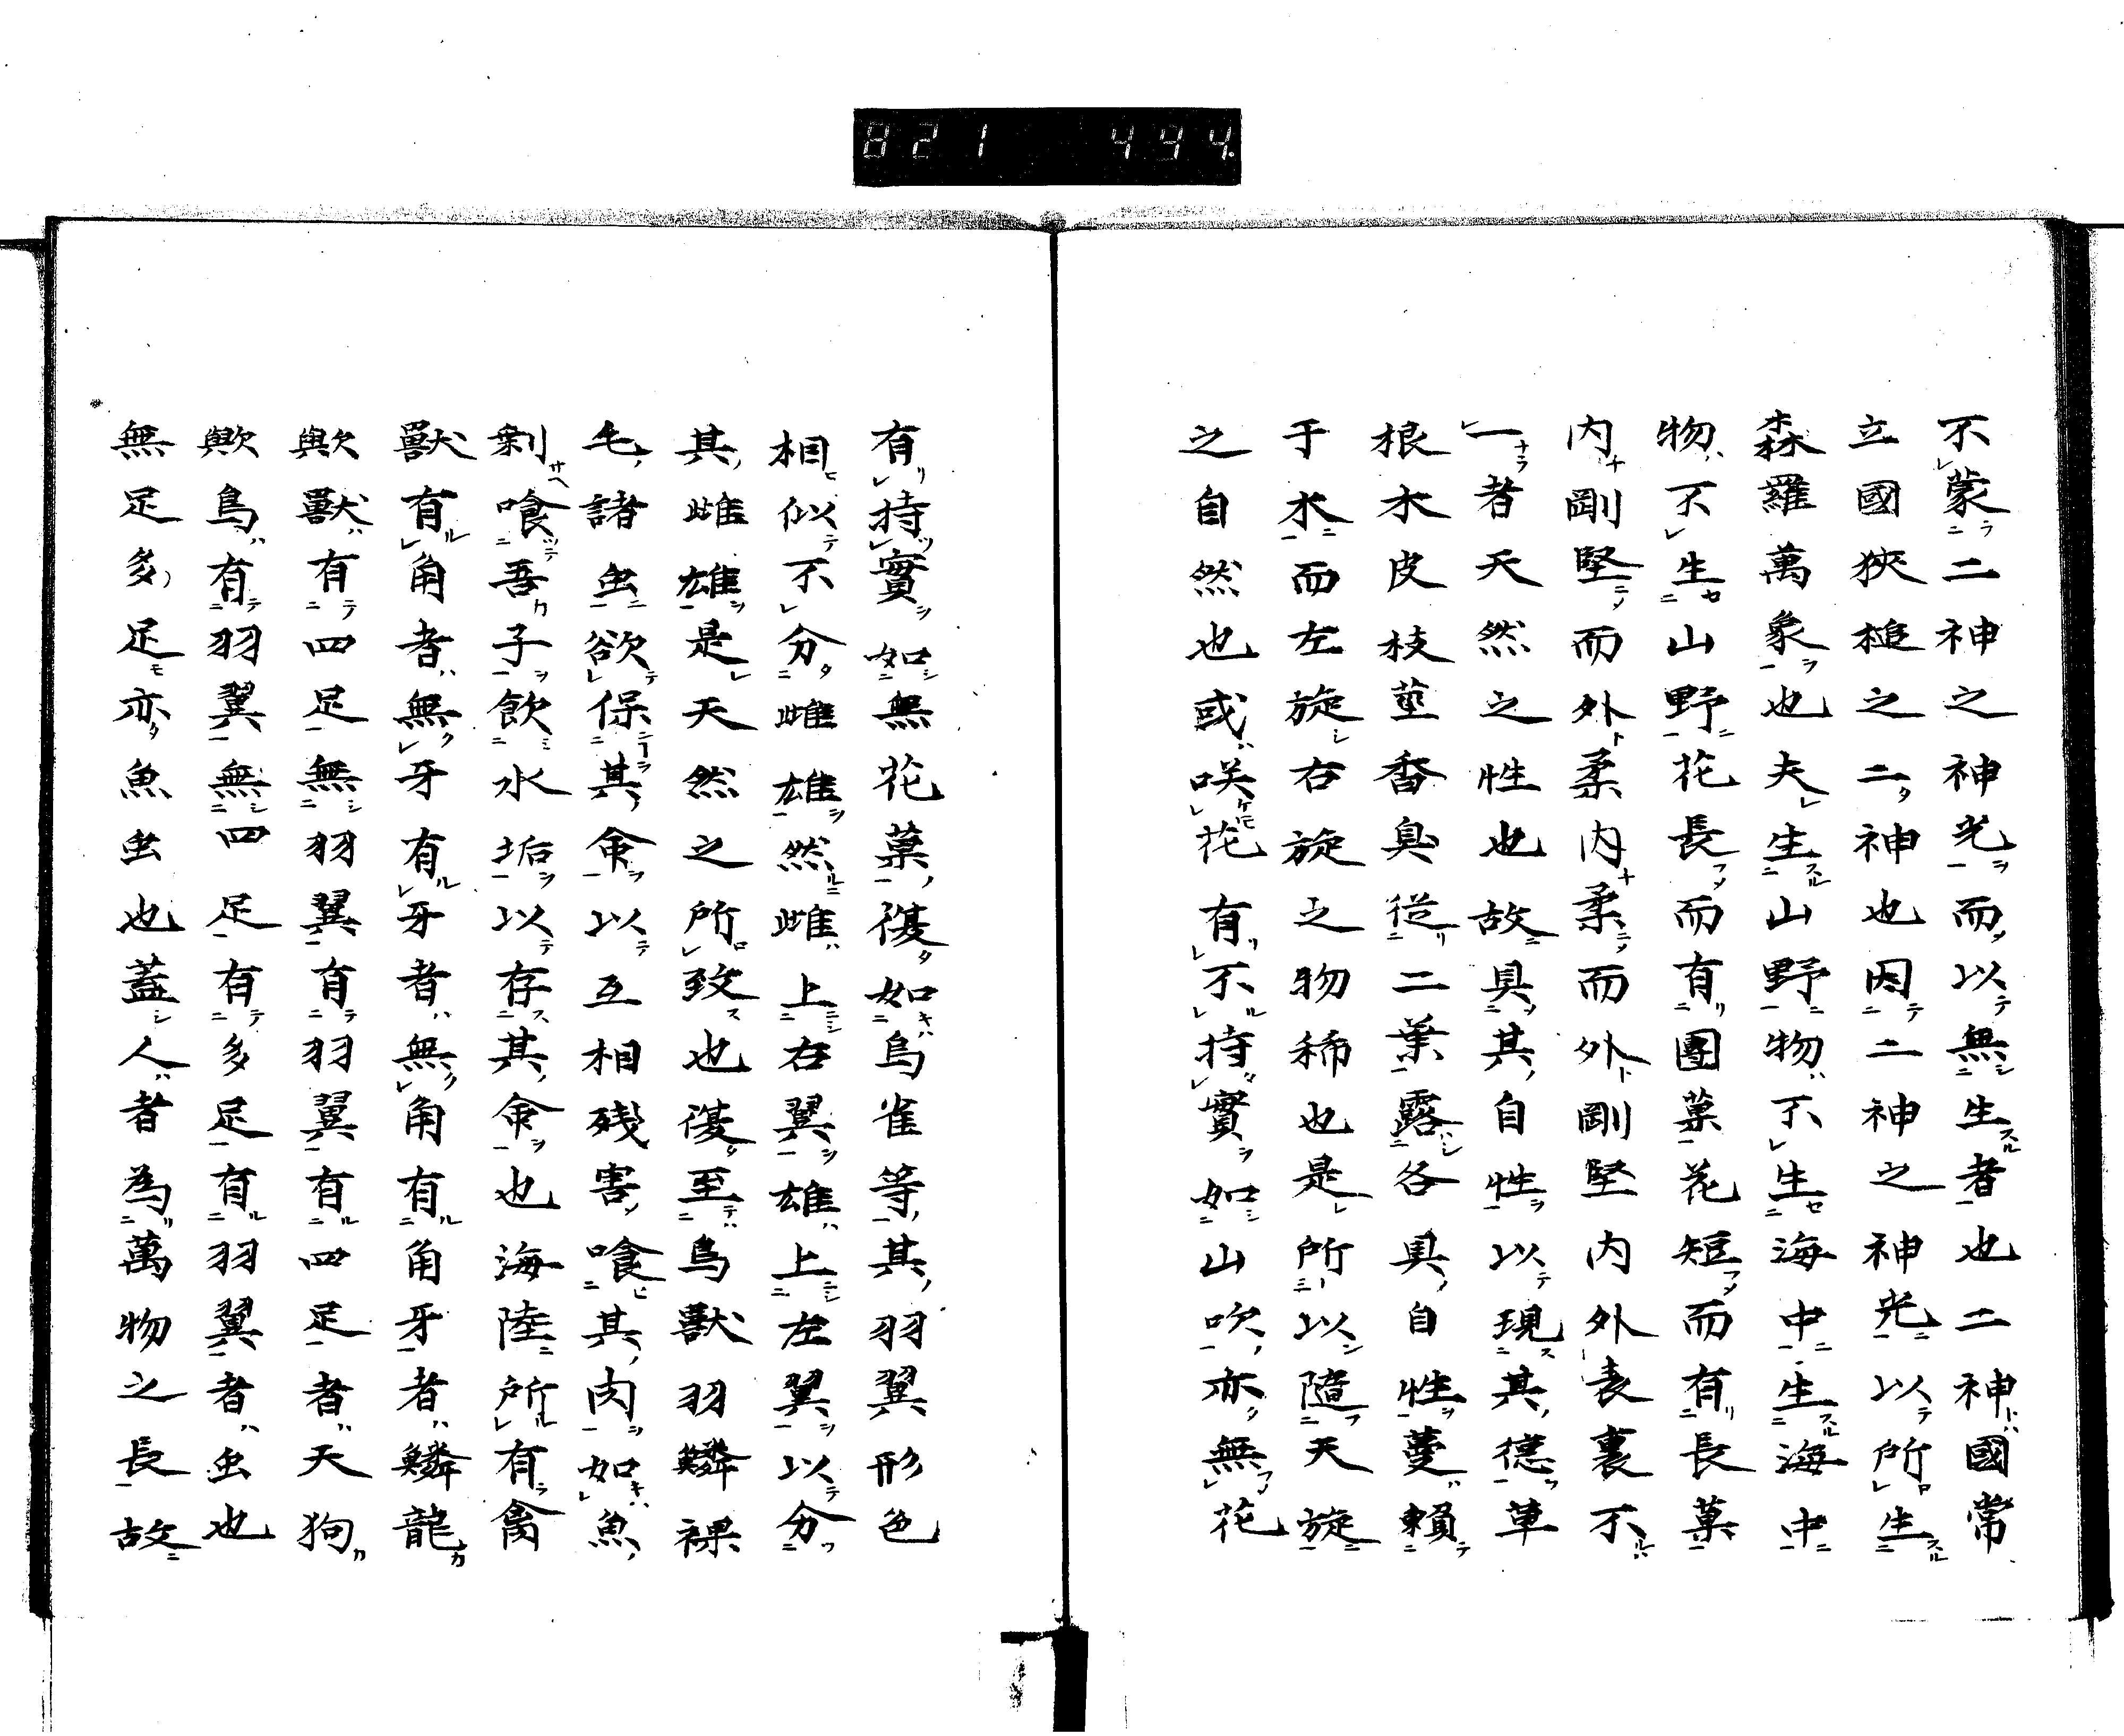 821 444.
不蒙二神之神光而以無生者也二神國常
立國狹槌之二神也因二神之神光以所生
森羅萬象也夫生山野物不生海中生海中
物不生山野花長而有團菓花短而有長菓
内剛堅而外柔内柔而外剛堅内外表裏不
一者天然之性也故具其自性以現其德草
根木皮枝莖香臭從二葉露各具自性蔓賴
于木而左旋右旋之物稀也是所以隨天旋
之自然也或咲花有不持實如山吹亦無花
有持實如無花菓復如烏雀等其羽翼形色
相似不分雌雄然雌上右翼雄上左翼以分
其雌雄是天然之所致也復至鳥獸羽鱗裸
毛諸虫欲保其命以互相殘害喰其肉如魚
剰喰吾子飲水垢以存其命也海陸所有禽
獸有角者無牙有牙者無角有角牙者鱗龍
歟獸有四足無羽翼有羽翼有四足者天狗
歟鳥有羽翼無四足有多足有羽翼者虫也
無足多足亦魚虫也蓋人者為萬物之長故